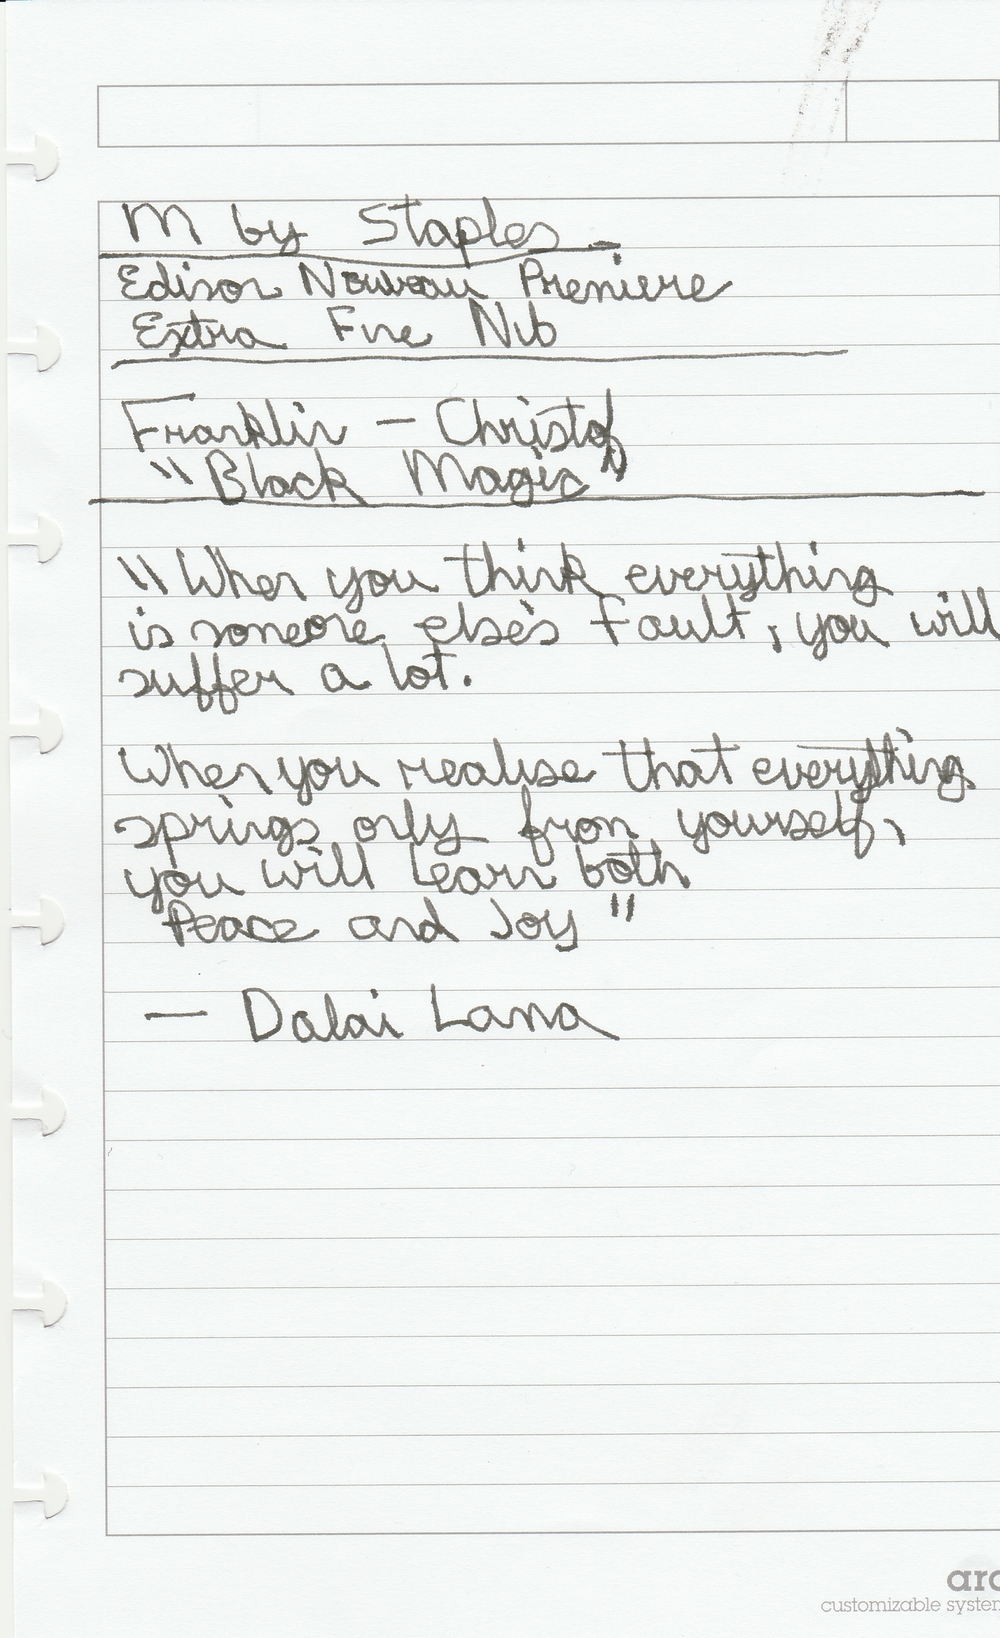 M by Staples
Edison Nouveau Premiere
Extra Fine Nib
Franklin - Christof
"Black Magic"
"When you think everything
is someone else's fault, you will
suffer a lot.
When you realise that everything
springs only from yourself,
you will learn both
Peace and Joy"
— Dalai Lama
arc
customizable system